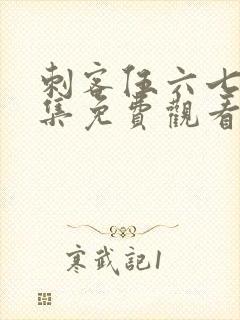 刺客伍六七
集免費觀看
寒武記1